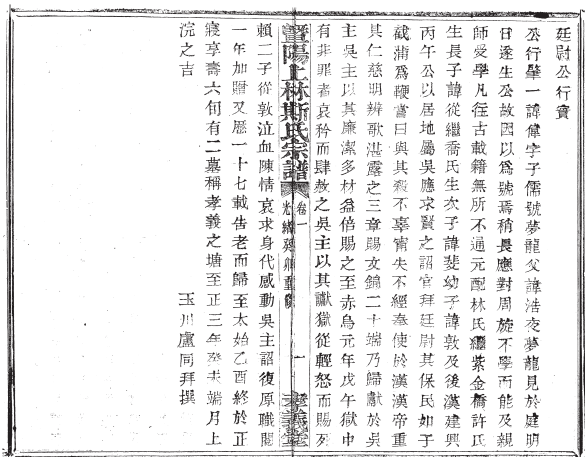 廷尉公行實
公行肇一諱偉字子儒號夢龍父諱浩夜夢龍見於庭明
日遂生公故因以為號焉稍長應對周旋不學而能及親
師受學凡徃古載籍無所不通元配林氏繼紫金橋許氏
生長子諱從繼喬氏生次子諱斐幼子諱敦及後漢建興
丙午公以居地屬吳應求賢之詔官拜廷尉其保民如子
截蒲為鞭嘗曰與其殺不辜甯失不經奉使於漢漢帝重
其仁慈明辨歌湛露之三章賜文錦二十端乃歸獻於吳
主吳主以其廉潔多材益倍賜之至赤烏元年戊午獄中
有非罪者哀矜而肆赦之吳主以其讞獄從輕怒而賜死
暨陽上林斯氏宗譜
卷一
光緒
重
一
孝義堂
賴二子從敦泣血陳情哀求身代感動吳主詔復原職閱
一年加贈又歷一十七載告老而歸至太始乙酉終於正
寢享壽六旬有二墓稱孝義之塘至正三年癸未端月上
浣之吉
玉川盧同拜撰